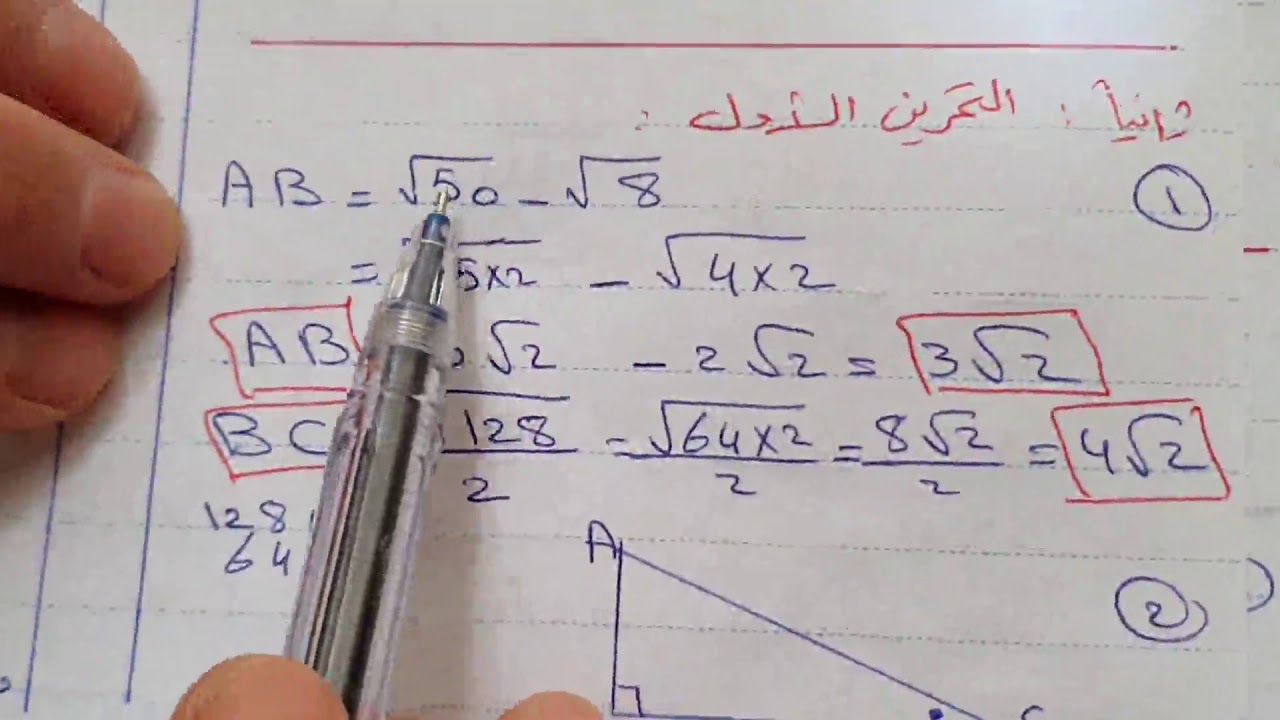 ثانياً : التمرين الأول :
①
AB = √50 - √8
= 5×2 - √4×2
AB √2 - 2√2 = 3√2
BC 128/2 = √64×2/2 = 8√2/2 = 4√2
128
64
A
②
C